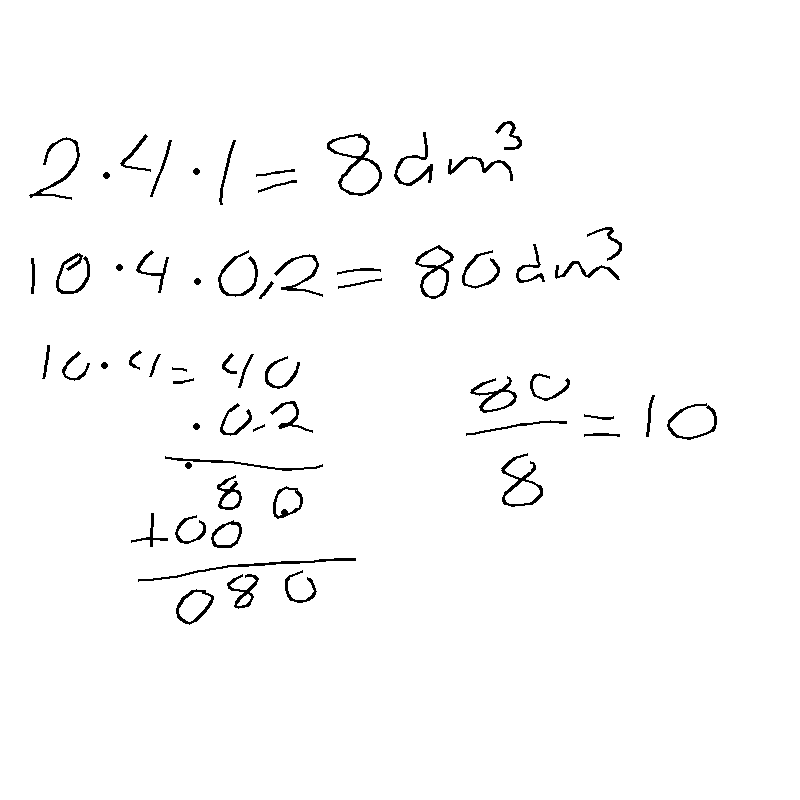 2·4·1=8dm³
10·4·0,2=80dm³
10·4=40
·0.2
80
+00
080
80
8
=10